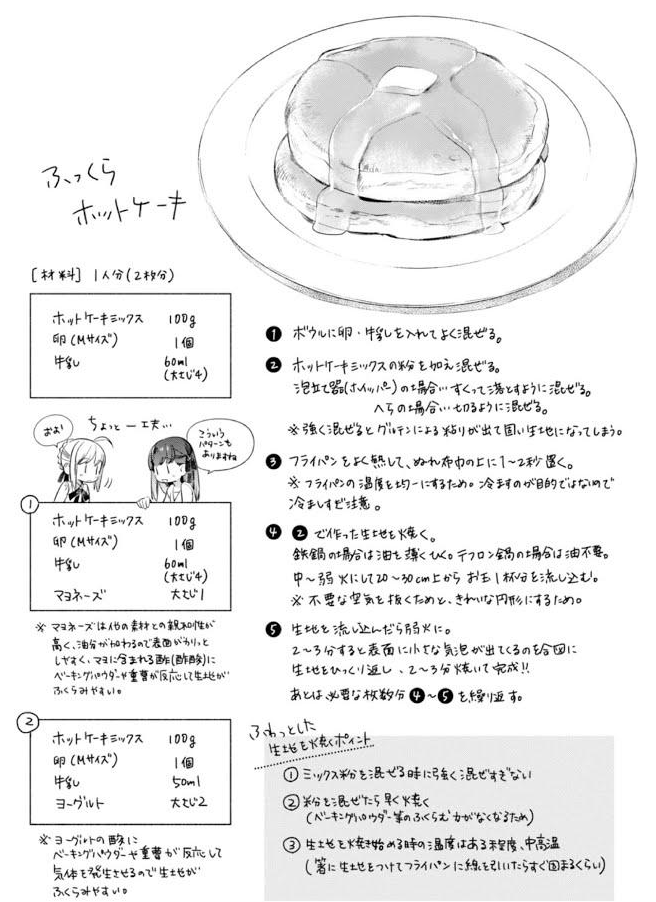 ふっくら
ホットケーキ
[材料] 1人分(2枚分)
ホットケーキミックス 100g
卵(Mサイズ) 1個
牛乳 60ml
(大さじ4)
ちょっと一工夫…
およ!
こういう
パターンも
ありますね
①
ホットケーキミックス 100g
卵(Mサイズ) 1個
牛乳 60ml
(大さじ4)
マヨネーズ 大さじ1
※ マヨネーズは他の素材との親和性が
高く、油分が加わるので表面がカリッと
しやすく、マヨに含まれる酢(酢酸)に
ベーキングパウダーや重曹が反応して生地が
ふくらみやすい。
②
ホットケーキミックス 100g
卵(Mサイズ) 1個
牛乳 50ml
ヨーグルト 大さじ2
※ヨーグルトの酸に
ベーキングパウダーや重曹が反応して
気体を発生させるので生地が
ふくらみやすい。
❶ ボウルに卵・牛乳を入れてよく混ぜる。
❷ ホットケーキミックスの粉を加え混ぜる。
泡立て器(ホイッパー)の場合…すくって落とすように混ぜる。
ヘラの場合…切るように混ぜる。
※強く混ぜるとグルテンによる粘りが出て固い生地になってしまう。
❸ フライパンをよく熱して、ぬれ布巾の上に1〜2秒置く。
※フライパンの温度を均一にするため。冷ますのが目的ではないので
冷ましすぎ注意。
❹ ❷で作った生地を焼く。
鉄鍋の場合は油を薄くひく。テフロン鍋の場合は油不要。
中〜弱火にして20〜30cm上からお玉1杯分を流し込む。
※不要な空気を抜くためと、きれいな円形にするため。
❺ 生地を流し込んだら弱火に。
2〜3分すると表面に小さな気泡が出てくるのを合図に
生地をひっくり返し、2〜3分焼いて完成!!
あとは、必要な枚数分❹〜❺を繰り返す。
ふわっとした
生地を焼くポイント
① ミックス粉を混ぜる時に強く混ぜすぎない
② 粉を混ぜたら早く焼く
(ベーキングパウダー等のふくらむ力がなくなるため)
③ 生地を焼き始める時の温度はある程度、中高温
(箸に生地をつけてフライパンに線を引いたらすぐ固まるくらい)